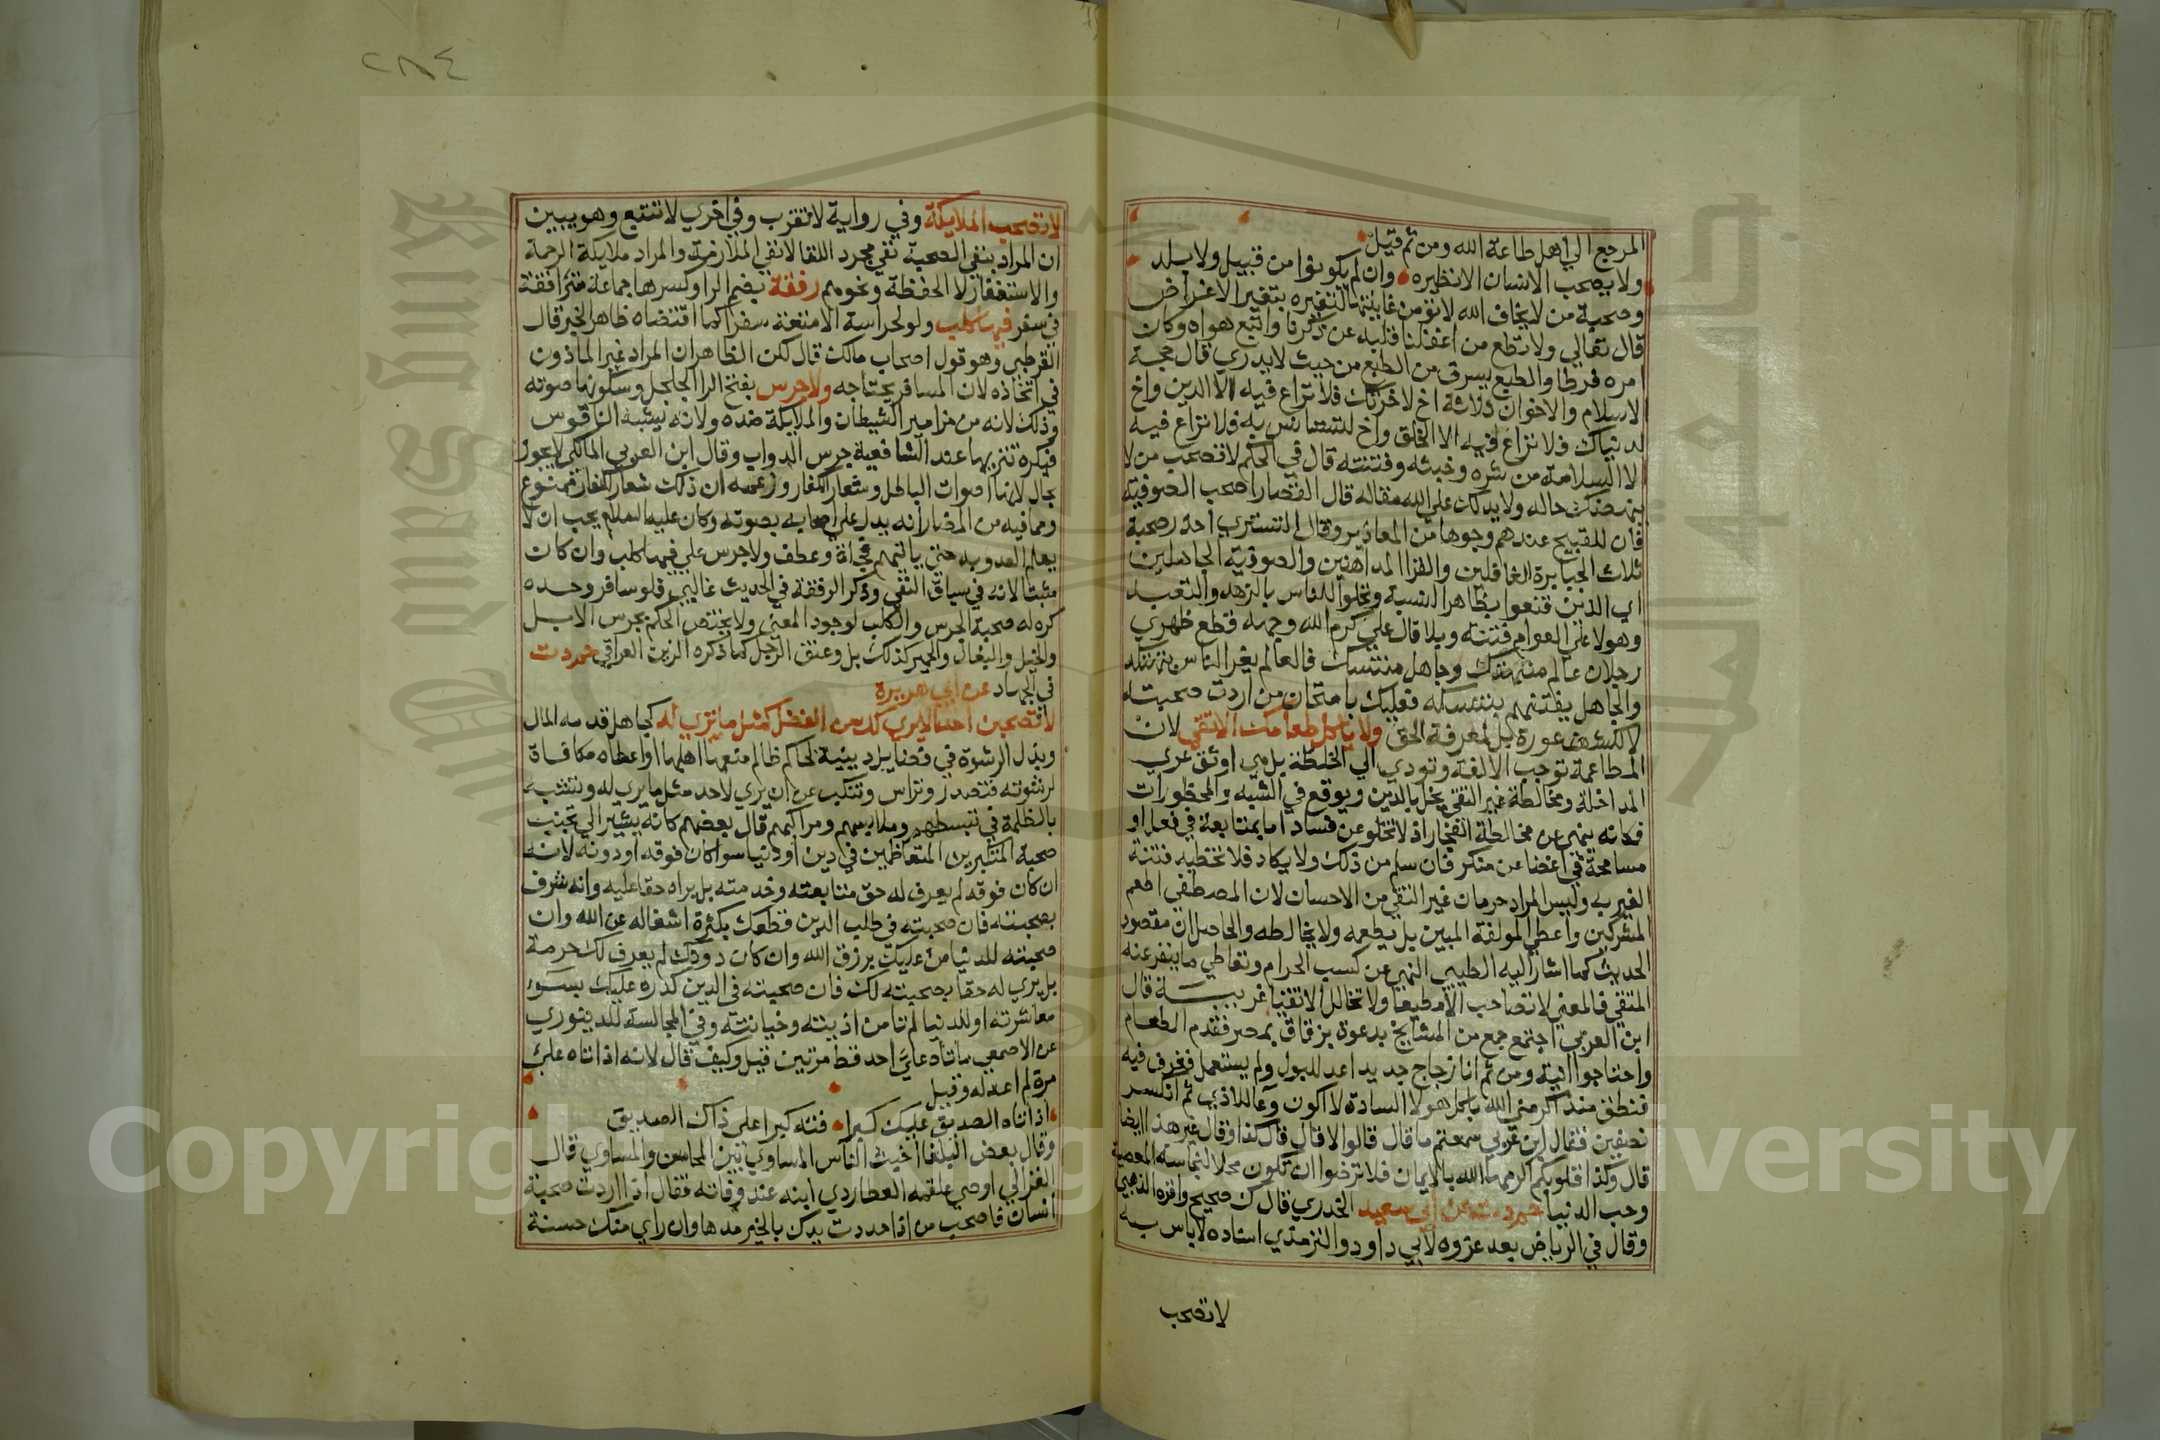 المرجع الي اهل طاعة الله ومن ثم قيل
ولا يصحب الانسان الا نظيره وان لم يكونوا من قبيل ولا بلد
وصحبة من لا يخاف الله لا تؤمن غايلتها لتغيره بتغير الاعراض
قال تعالي ولا تطع من اغفلنا قلبه عن ذكرنا واتبع هواه وكان
امره فرطا والطبع يسرق من الطبع من حيث لا يدري قال حجة
الاسلام والاخوان ثلاثة اخ لاخرتك فلا تراع فيه الا الدين واخ
لدنياك فلا تراع فيه الا الخلق واخ لتستانس به فلا تراع فيه
الا السلامة من شره وخبثه وفتنته قال في الحكم لا تصحب من لا
ينهضك حاله ولا يدلك علي الله مقاله قال القصار اصحب الصوفية
فان للقبيح عندهم وجوها من المعاذير وقال التستري احذر صحبة
ثلاث الجبابرة الغافلين والقرا المداهنين والصوفية الجاهلين
اي الذين قنعوا بظاهر النسبة وتحلوا للناس بالزهد والتعبد
وهولا علي العوام فتنة وبلا قال علي كرم الله وجهه قطع ظهري
رجلان عالم متهتك وجاهل متنسك فالعالم يغر الناس بتهتكه
والجاهل يفتنهم بتنسكه فعليك بامتحان من اردت صحبته
لا لكشف عورة بل لمعرفة الحق ولا ياكل طعامك الا تقي لان
المطاعمة توجب الالفة وتودي الي الخلطة بل هي اوثق عري
المداخلة ومخالطة غير التقي يخل بالدين ويوقع في الشبه والمحظورات
فكانه ينهي عن مخالطة الفجار اذ لا تخلو عن فساد اما بمتابعة في فعل او
مسامحة في اغضا عن منكر فان سلم من ذلك ولا يكاد فلا تخطيه فتنة
الغير به وليس المراد حرمان غير التقي من الاحسان لان المصطفي اطعم
المشركين واعطي المولفة المبين بل يطعمه ولا يخالطه والحاصل ان مقصود
الحديث كما اشار اليه الطيبي النهي عن كسب الحرام وتعاطي ما ينفر عنه
المتقي فالمعني لا تصاحب الا مطيعا ولا تخالل الا تقيا غريبة قال
ابن العربي اجتمع جمع من المشايخ بدعوة بزقاق بمصر فقدم الطعام
واحتاجوا انية ومن ثم انا زجاج جديد اعد للبول ولم يستعمل فغرف فيه
فنطق منذ اكرمني الله باكل هولا السادة لا اكون وعا للاذي ثم انكسر
نصفين فقال ابن عربي سمعتم ما قال قالوا لا قال قال كذا وقال غير هذا ايضا
قال وكذا قلوبكم اكرمها الله بالايمان فلا ترضوا ان تكون محلا لنجاسة المعصية
وحب الدنيا حم د ت عن ابي سعيد الخدري قال ك صحيح واقره الذهبي
وقال في الرياض بعد عزوه لابي داود والترمذي اسناده لا باس به
لا تصحب
٢٨٤
لا تصحب الملايكة وفي رواية لا تقرب وفي اخري لا تتبع وهو يبين
ان المراد بنفي الصحبة نفي مجرد اللقا لا نفي الملازمة والمراد ملايكة الرحمة
والاستغفار لا الحفظة ونحوهم رفقة بضم الرا وكسرها جماعة مترافقة
في سفر فيها كلب ولو لحراسة الامتعة سفرا كما اقتضاه ظاهر الخبر قال
القرطبي وهو قول اصحاب مالك قال لكن الظاهر ان المراد غير الماذون
في اتخاذه لان المسافر يحتاجه ولا جرس بفتح الرا الجلجل وسكونها صوته
وذلك لانه من مزامير الشيطان والملايكة ضده ولانه يشبه الناقوس
فيكره تنزيها عند الشافعية جرس الدواب وقال ابن العربي المالكي لا يجوز
بحال لانها اصوات الباطل وشعار الكفار وزعمه ان ذلك شعار الكفار ممنوع
ومما فيه من المضار انه يدل علي اصحابه بصوته وكان عليه السلام يحب ان لا
يعلم العدو به حتي ياتيهم فجاة وعطف ولا جرس علي فيها كلب وان كان
مثبتا لانه في سياق النفي وذكر الرفقة في الحديث غالبي فلو سافر وحده
كره له صحبة الجرس والكلب لوجود المعني ولا يختص الحكم بجرس الابل
والخيل والبغال والحمير كذلك بل وعنق الرجل كما ذكره الزين العراقي حم م د ت
في الجهاد عن ابي هريرة
لا تصحبن احدا لا يري لك من الفضل كمثل ما تري له كجاهل قدمه المال
وبذل الرشوة في فضايل دينية لحاكم ظالم منعها اهلها او اعطاه مكافاة
لرشوته فتصدر وتراس وتكبر عن ان يري لاحد مثل ما يري له وتتشبه
بالظلمة في تبسطهم وملابسهم ومراكبهم قال بعضهم كانه يشير الي تجنب
صحبة المتكبرين المتعاظمين في دين او دنيا سوا كان فوقه او دونه لانه
ان كان فوقه لم يعرف له حق متابعته وخدمته بل يراه حقا عليه وانه شرف
بصحبته فان صحبته في طلب الدين قطعك بكثرة اشغاله عن الله وان
صحبته للدنيا من عليك برزق الله وان كان دونك لم يعرف لك حرمة
بل يري له حقا بصحبته لك فان صحبته في الدين كدره عليك بسو
معاشرته او للدنيا لم تامن اذيته وخيانته وفي المجالسة للدينوري
عن الاصمعي ما تاه علي احد قط مرتين قيل وكيف قال لانه اذا تاه علي
مرة لم اعد له وقيل
اذا تاه الصديق عليك كبرا فته كبرا علي ذاك الصديق
وقال بعض البلغا اخبث الناس المساوي بين المحاسن والمساوي قال
الغزالي اوصي علقمة العطاردي ابنه عند وفاته فقال اذا اردت صحبة
انسان فاصحب من اذا مددت يدك بالخير مدها وان راي منك حسنة
Copyright © King Saud University
King Saud University